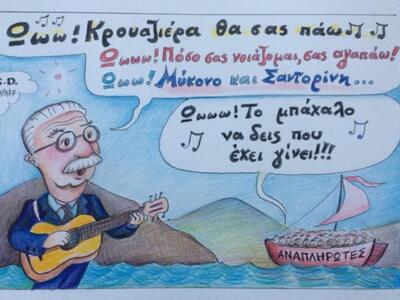 Ωωω! Κρουαζιέρα θα σας πάω
Ωωωω! Πόσο σας νοιάζομαι, σας αγαπάω!
Ωωω! Μύκονο και Σαντορίνη...
Ωωωω! Το μπάχαλο
να δεις που
έχει γίνει!!!
ΑΝΑΠΛΗΡΩΤΕΣ